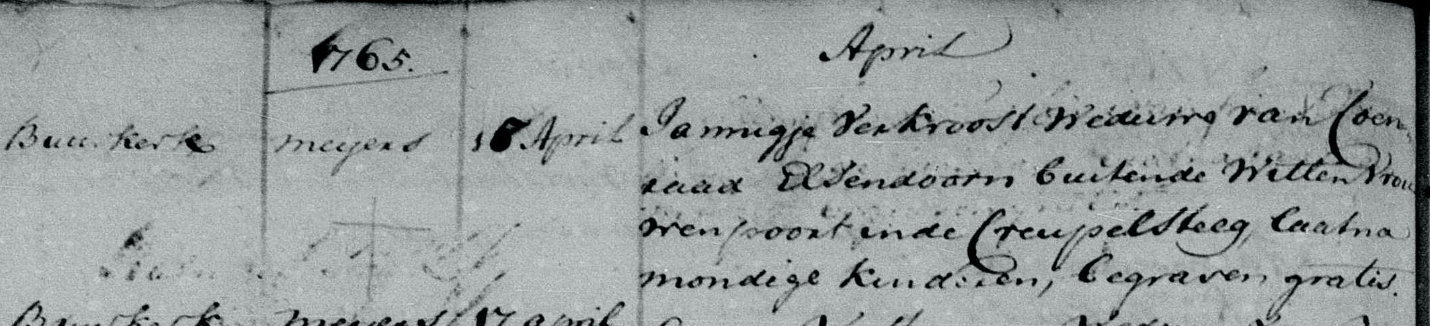 1765. April
Buurkerk meyers 16 April Jannigje Verkroost Weduwe van Coen,
raad Elsendoorn buitende Witten Vrou
wenpoort inde Creupelsteeg laatna
mondige kinderen, begraven gratis.
Buurkerk meyers 17 april